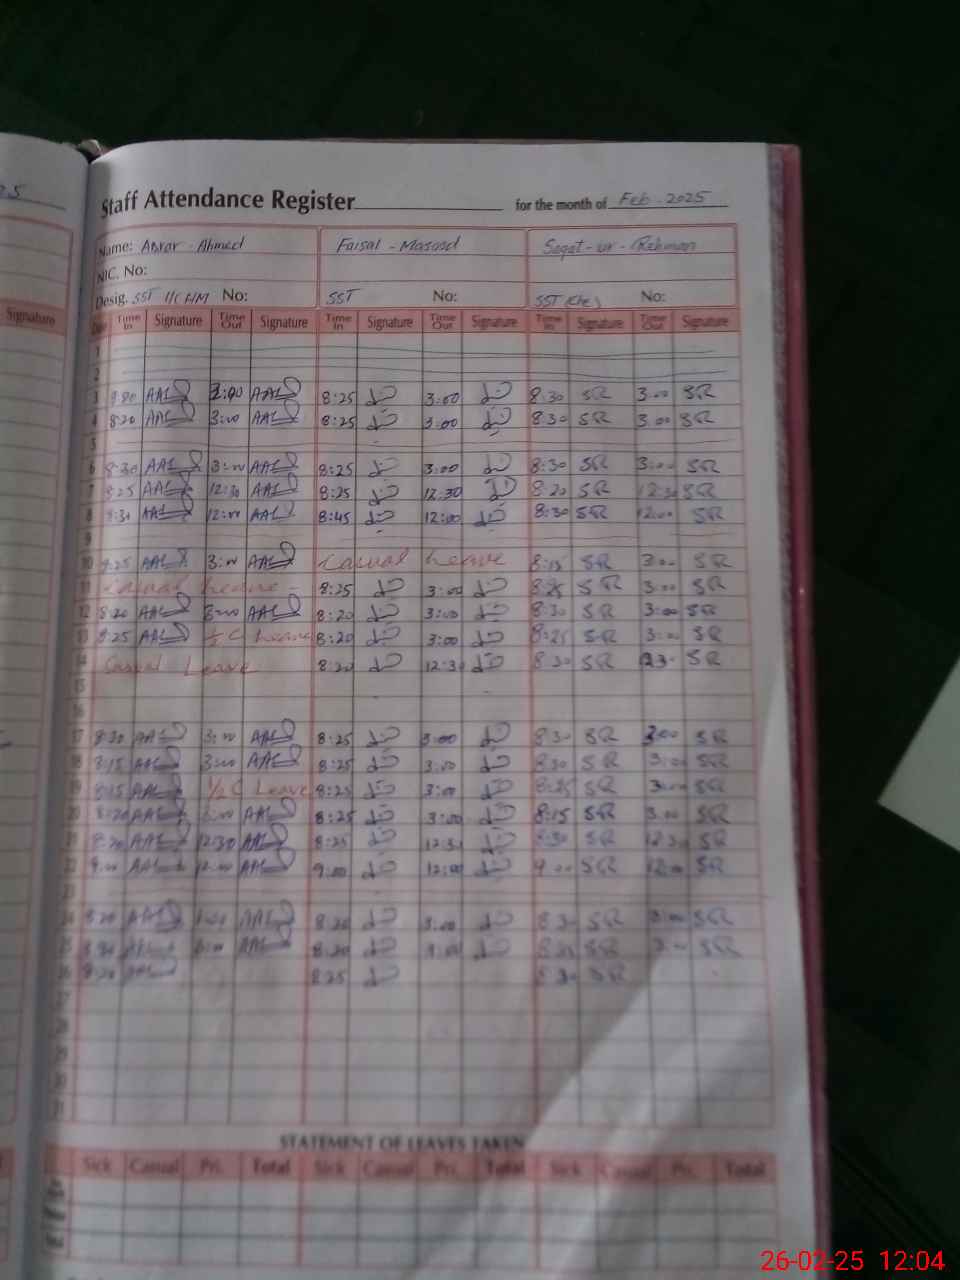 25
Staff Attendance Register for the month of Feb - 2025
Name: Abrar - Ahmed Faisal - Masood Saqat-ur-Rehman
NIC. No:
Desig. SST I/C HM No: SST No: SST (Che) No:
Signature Time In Signature Time Out Signature Time In Signature Time Out Signature Time In Signature Time Out Signature
1
2
3 AAL AAL 8:25 3:00 8:30 SR 3:00 SR
4 8:20 AAL 3:00 AAL 8:25 3:00 8:30 SR 3:00 SR
5
6 8:30 AAL 3:00 AAL 8:25 3:00 8:30 SR 3:00 SR
7 8:25 AAL 12:30 AAL 8:25 12:30 8:20 SR 12:30 SR
8 8:30 AAL 12:00 AAL 8:45 12:00 8:30 SR 12:00 SR
9
10 8:25 AAL 3:00 AAL Casual Leave 8:15 SR 3:00 SR
11 Casual Leave - 8:25 3:00 SR 3:00 SR
12 8:20 AAL 3:00 AAL 8:20 3:00 8:30 SR 3:00 SR
13 8:25 AAL ½ C Leave 8:20 3:00 8:25 SR 3:00 SR
14 Casual Leave 8:20 12:30 8:30 SR SR
15
16
17 8:20 AAL 3:00 AAL 8:25 3:00 8:30 SR 3:00 SR
18 8:15 AAL 3:00 AAL 8:25 3:00 8:30 SR 3:00 SR
19 AAL 1/2 C Leave 8:25 3:00 8:25 SR 3:00 SR
20 8:20 AAL AAL 8:25 3:00 8:15 SR 3:00 SR
21 8:20 AAL 12:30 AAL 8:25 12:30 8:30 SR 12:30 SR
22 9:00 AAL 12:00 AAL 9:00 12:00 9:00 SR 12:00 SR
23
24 8:20 AAL AAL 8:20 3:00 8:30 SR 3:00 SR
25 AAL AAL 8:20 3:00 SR 3:00 SR
26 8:20 AAL 8:25 8:30 SR
27
28
29
30
31
STATEMENT OF LEAVES TAKEN
Sick Casual Pri. Total Sick Casual Pri. Total Sick Casual Pri. Total
26-02-25 12:04